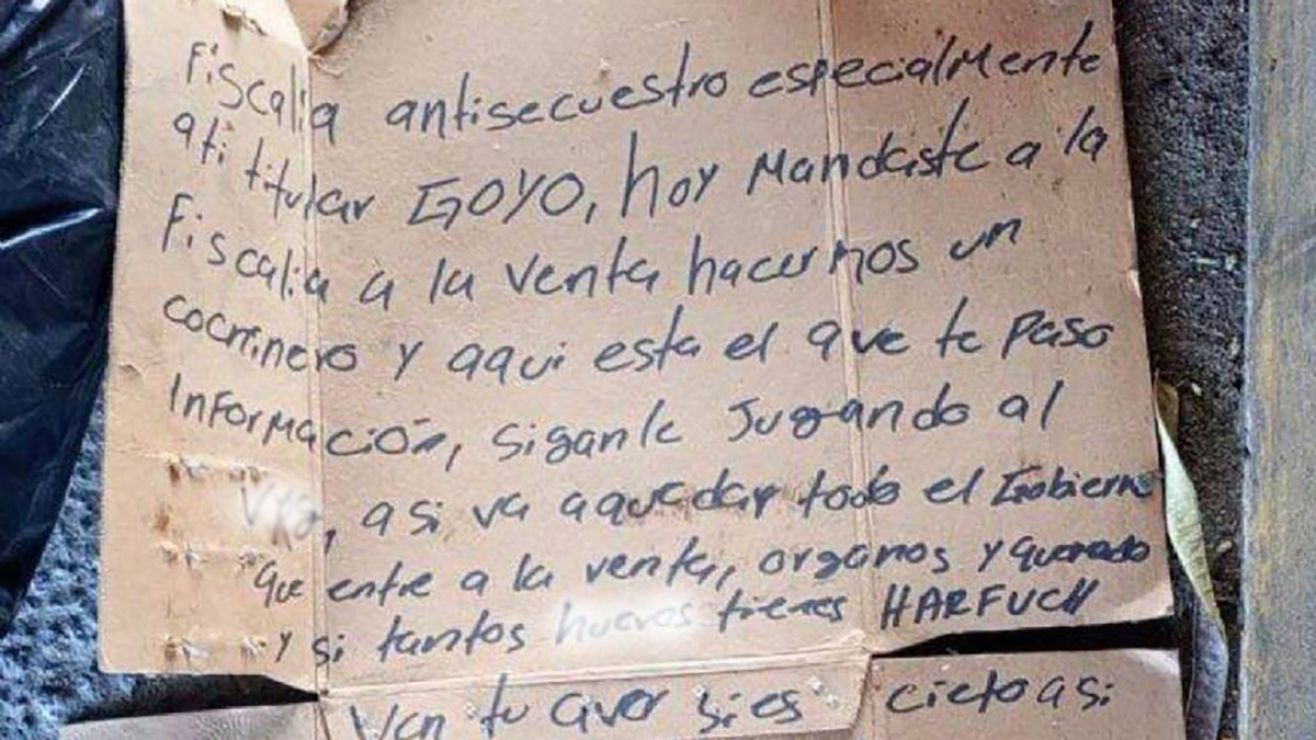 Fiscalia antisecuestro especialmente
ati titular GOYO, hoy Mandaste a la
Fiscalia a la venta hacernos un
cochinero y aqui esta el que te paso
Información, siganle Jugando al
Vrg, asi va aquedar todo el Gobierno
que entre a la venta, organos y quemado
y si tantos huevos tienes HARFUCH
Ven tu aver si es cieto asi